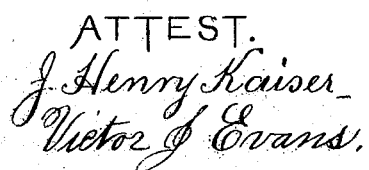 ATTEST.
J. Henry Kaiser
Victor J Evans.